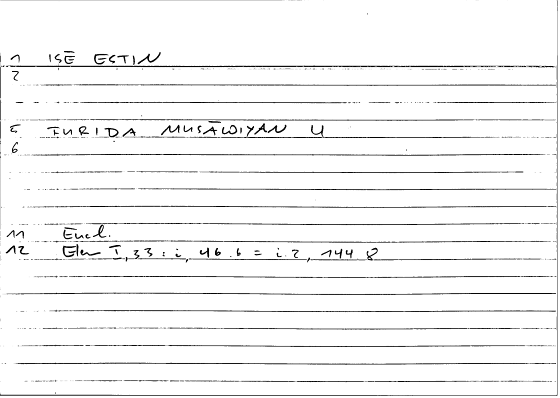 1 ISĒ ESTIN
2
5 FURIDA MUSĀWIYAN 4
6
11 Eucl.
12 Elem I,33 : i, 46.6 = i.2, 144 8